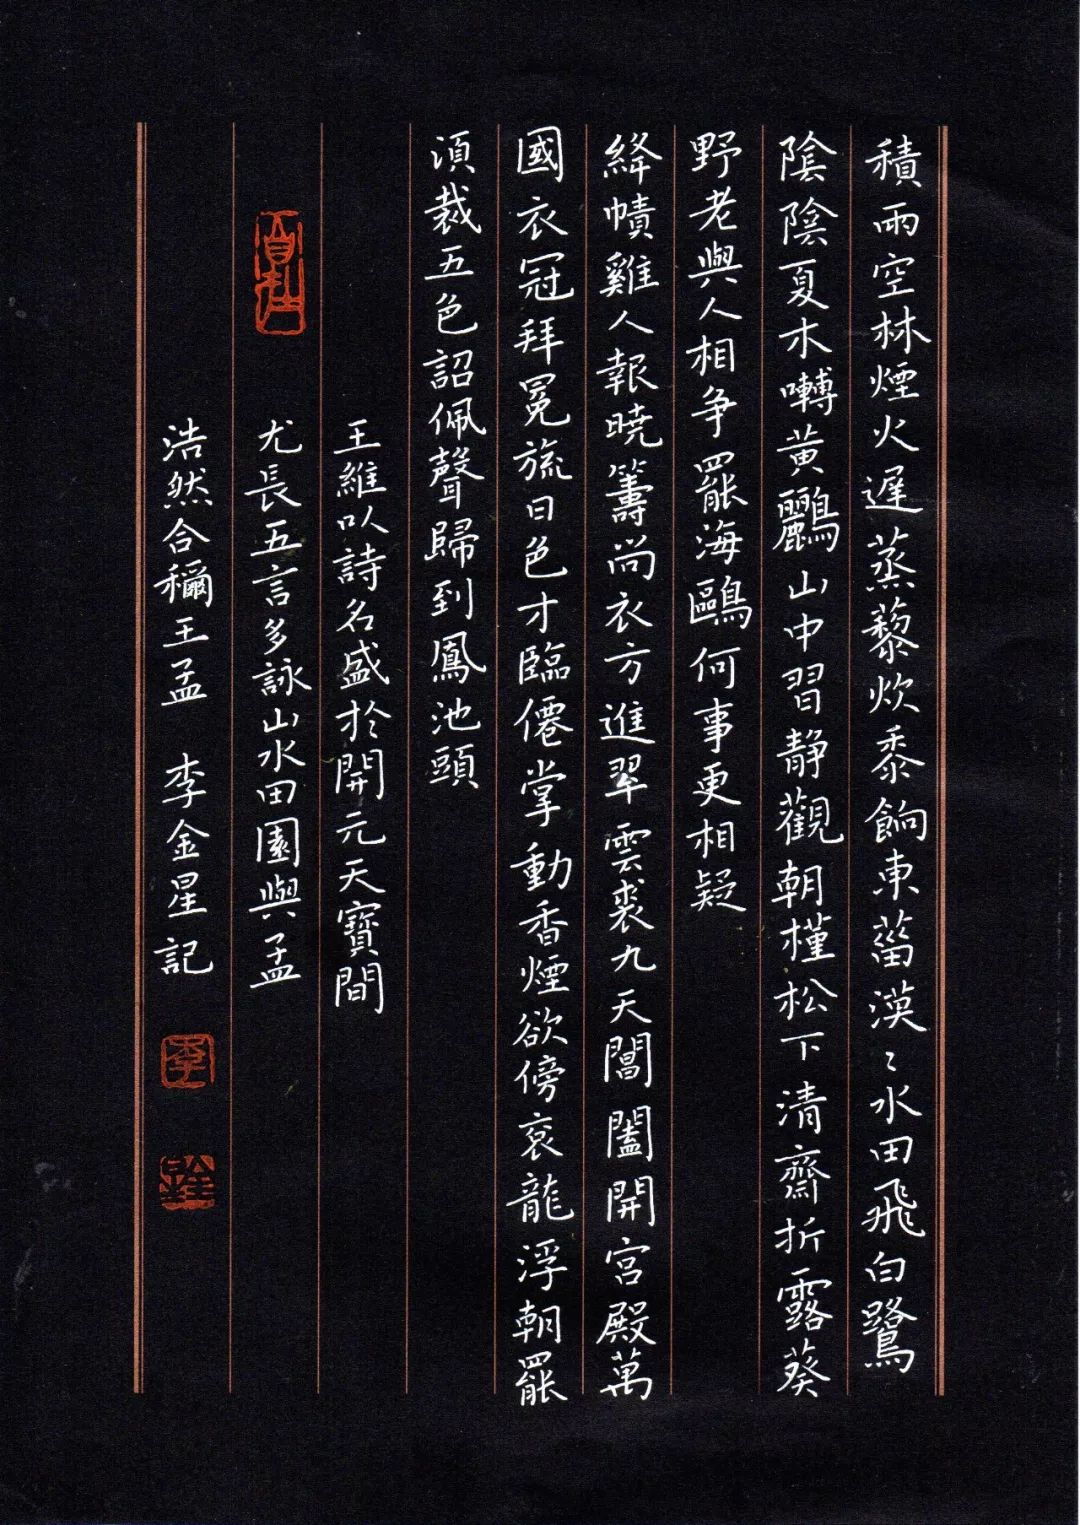 積雨空林煙火遲蒸藜炊黍餉東菑漠〻水田飛白鷺
陰陰夏木囀黃鸝山中習靜觀朝槿松下清齋折露葵
野老與人相爭罷海鷗何事更相疑
絳幘雞人報曉籌尚衣方進翠雲裘九天閶闔開宮殿萬
國衣冠拜冕旒日色才臨僊掌動香煙欲傍袞龍浮朝罷
須裁五色詔佩聲歸到鳳池頭
王維以詩名盛於開元天寶間
尤長五言多詠山水田園與孟
浩然合稱王孟 李金星記
李